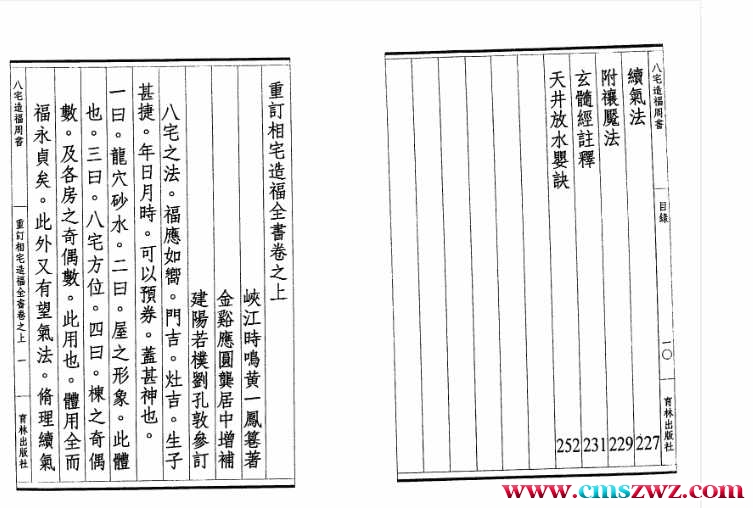 八宅造福周書
目錄
一〇
育林出版社
續氣法 227
附禳魘法 229
玄髓經註釋 231
天井放水嬰訣 252
重訂相宅造福全書卷之上
峽江時鳴黃一鳳篹著
金谿應圓龔居中增補
建陽若樸劉孔敦參訂
八宅之法。福應如嚮。門吉。灶吉。生子
甚捷。年日月時。可以預券。蓋甚神也。
一曰。龍穴砂水。二曰。屋之形象。此體
也。三曰。八宅方位。四曰。棟之奇偶
數。及各房之奇偶數。此用也。體用全而
福永貞矣。此外又有望氣法。脩理續氣
八宅造福周書
重訂相宅造福全書卷之上
一
育林出版社
www.cmszwz.com